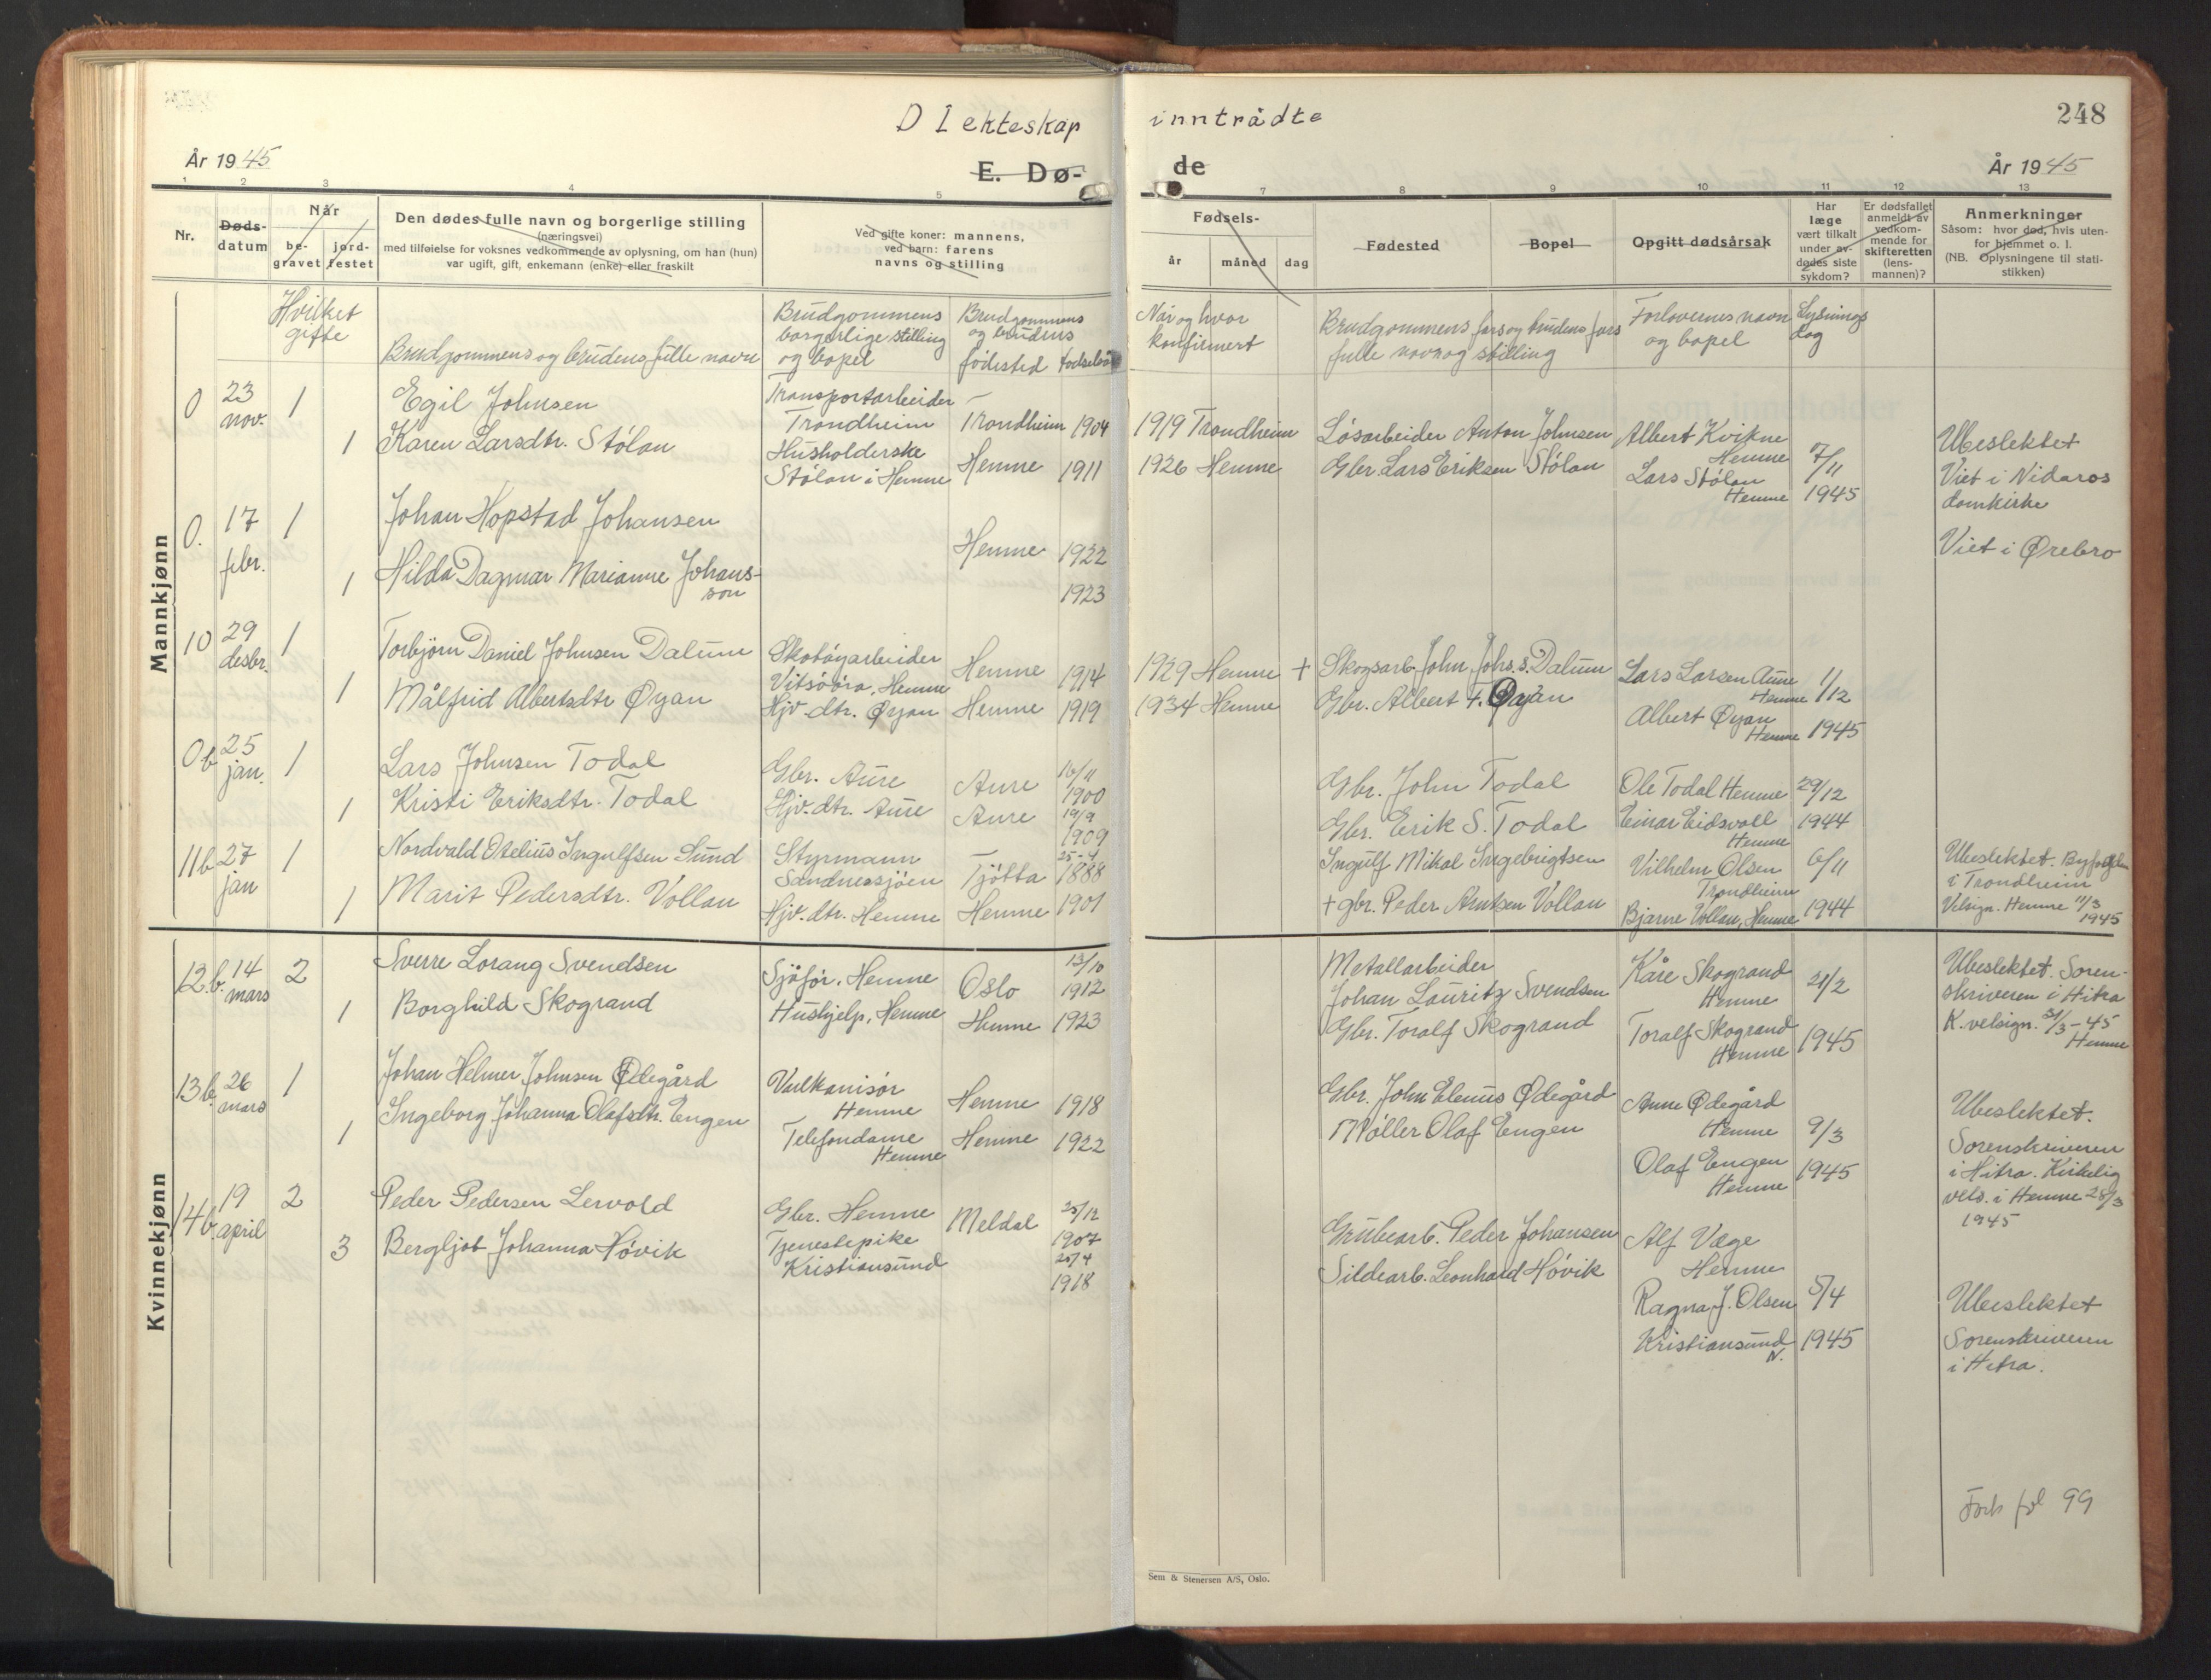 D I ekteskap inntrådte
248
År 1945
E. Dø-
de
År 1945
1 2 3 4 5 7 8 9 10 11 12 13
Nr.
Døds-
datum
Når
be-
gravet
jord-
festet
Den dødes fulle navn og borgerlige stilling
(næringsvei)
med tilføielse for voksnes vedkommende av oplysning, om han (hun)
var ugift, gift, enkemann (enke) eller fraskilt
Ved gifte koner: mannens,
ved barn: farens
navns og stilling
Fødsels-
år måned dag
Fødested
Bopel
Opgitt dødsårsak
Har
læge
vært tilkalt
under av-
dødes siste
sykdom?
Er dødsfallet
anmeldt av
vedkom-
mende for
skifteretten
(lens-
mannen)?
Anmerkninger
Såsom: hvor død, hvis uten-
for hjemmet o. l.
(NB. Oplysningene til stati-
stikken)
Hvilket
gifte
Brudgommens og brudens fulle navn
Brudgommens
borgerlige stilling
og bopel
Brudgommens
og brudens
fødested fødselsår
Når og hvor
konfirmert
Brudgommens fars og brudens fars
fulle navn og stilling
Forlovernes navn
og bopel
Lysnings
dag
Mannkjønn
0 23
nov.
1
Egil Johnsen
Transportarbeider
Trondheim
Trondheim 1904
1919 Trondheim
Løsarbeider Anton Johnsen
Albert Kvikne
Hemne
1
Karen Larsdtr. Stølan
Husholderske
Stølan i Hemne
Hemne 1911
1926 Hemne
Gbr. Lars Eriksen Stølan
Lars Stølan
Hemne
7/11
1945
Ubeslektet
Viet i Nidaros
domkirke
0. 17
febr.
1
Johan Hopstad Johansen
Hemne 1922
Viet i Ørebro
1
Hilda Dagmar Marianne Johans-
son
1923
10 29
desbr.
1
Torbjørn Daniel Johnsen Dalum
Skotøyarbeider
Vitsøöra, Hemne
Hemne 1914
1929 Hemne
+ Skogsarb. John Johs.s. Dalum
Lars Larsen Aune
Hemne
1
Målfrid Albertsdtr Øyan
Hjv. dtr. Øyan
Hemne 1919
1934 Hemne
Gbr. Albert + Øyan
Albert Øyan
Hemne
1/12
1945
0b 25
jan.
1
Lars Johnsen Todal
Gbr. Aure
Aure
16/11
1900
Gbr. John Todal
Ole Todal Hemne
1
Kristi Eriksdtr. Todal
Hjv. dtr. Aure
Aure
19/9
1909
Gbr. Erik S. Todal
Einar Eidsvoll
Hemne
29/12
1944
11b 27
jan
1
Nordvald Otelius Ingulfsen Sund
Styrmann
Sandnessjöen
Tjøtta
25-4
1888
Ingulf Mikal Ingebrigtsen
Vilhelm Olsen
Trondheim
1
Marit Pedersdtr. Vollan
Hjv. dtr. Hemne
Hemne 1901
+ gbr. Peder Arntsen Vollan
Bjarne Vollan, Hemne
6/11
1944
Ubeslektet. Byfogden
i Trondheim
Velsign. Hemne 11/3
1945
Kvinnekjønn
12.b. 14
mars
2
Sverre Lorang Svendsen
Sjåför, Hemne
Oslo
13/10
1912
Metallarbeider
Johan Lauritz Svendsen
Kåre Skogrand
Hemne
1
Borghild Skogrand
Hushjelp, Hemne
Hemne 1923
Gbr. Toralf Skogrand
Toralf Skogrand
Hemne
21/2
1945
Ubeslektet. Soren-
skriveren i Hitra
K. velsign. 31/3-45
Hemne
13b. 26
mars
1
Johan Helmer Johnsen Ødegård
Vulkanisør
Hemne
Hemne 1918
Gbr. John Elenius Ødegård
Anne Ødegård
Hemne
1
Ingeborg Johanna Olafsdtr. Engen
Telefondame
Hemne
Hemne 1922
Møller Olaf Engen
Olaf Engen
Hemne
9/3
1945
Ubeslektet.
Sorenskriveren
i Hitra. Kirkelig
vels. i Hemne 28/3
1945
14b. 19
april
2
Peder Pedersen Lervold
Gbr. Hemne
Meldal
25/12
1907
Grubearb. Peder Johansen
Alf Væge
Hemne
3
Bergljot Johanna Høvik
Tjenestepike
Kristiansund
20/4
1918
Sildearb. Leonhard Høvik
Ragna J. Olsen
Kristiansund
N.
5/4
1945
Ubeslektet
Sorenskriveren
i Hitra.
Forts fol 99
Sem & Stenersen A/S, Oslo.